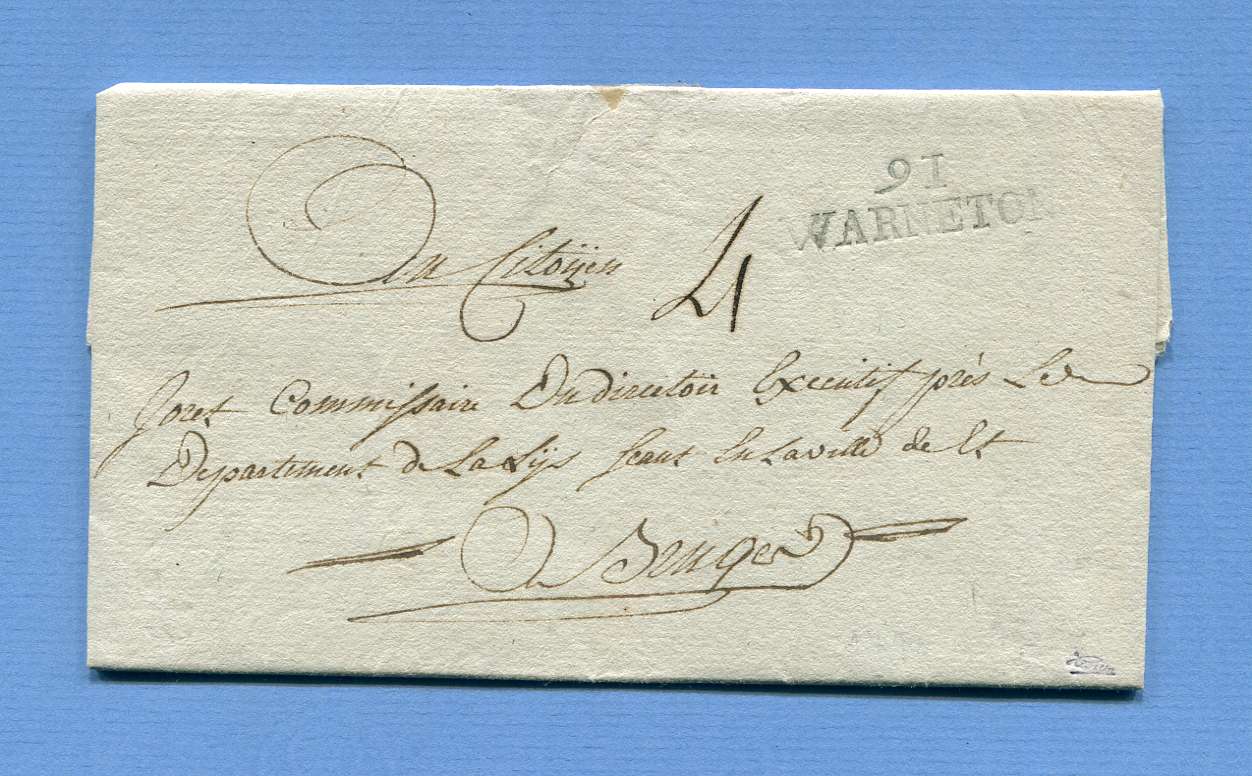 91
WARNETON
Au Citoÿen 4
Joret Commissaire Du directoir Executif près Le
Departement de La Lÿs seant En La ville de Et
A Bruges